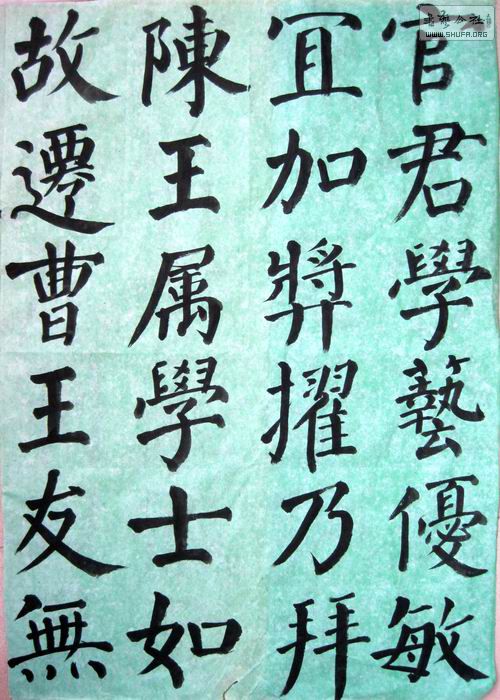 官君學藝優敏
冝加弉擢乃拜
陳王属學士如
故遷曹王友無
WWW.SHUFA.ORG